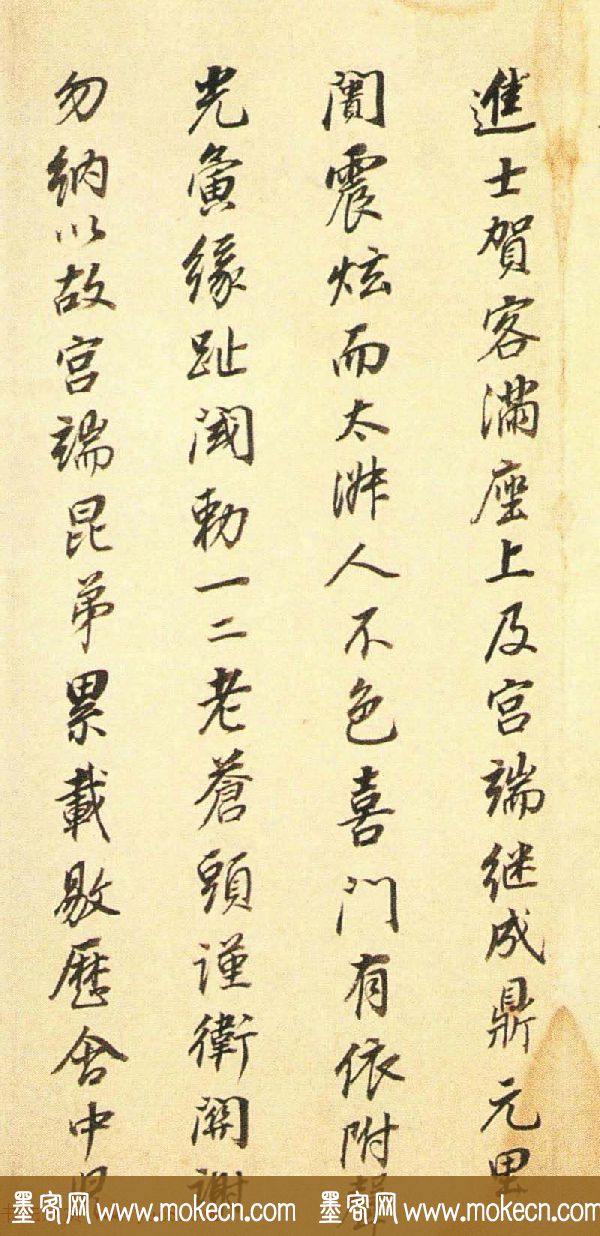 進士賀客滿座上及宮端繼成鼎元里
闠震炫而太淋人不色喜門有依附聲
光夤緣趾閾勅一二老蒼頭謹衛關謝
勿納以故宮端昆弟累載敭歷舍中
墨客网 www.mokecn.com 墨客网 www.mokecn.com